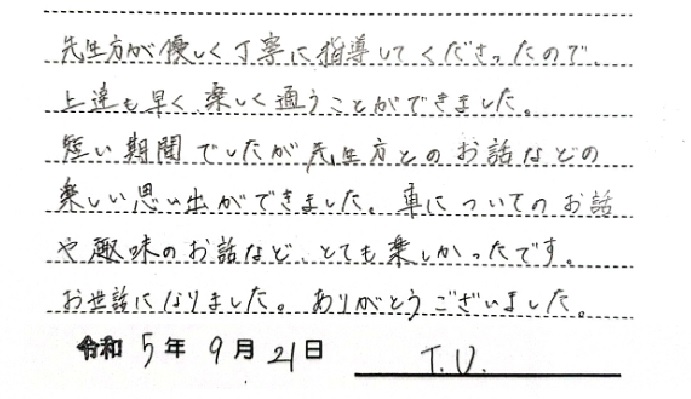 先生方が優しく丁寧に指導してくださったので、
上達も早く、楽しく通うことができました。
短い期間でしたが先生方とのお話などの
楽しい思い出ができました。車についてのお話
や趣味のお話など、とても楽しかったです。
お世話になりました。ありがとうございました。
令和 5 年 9 月 21 日 T.U.